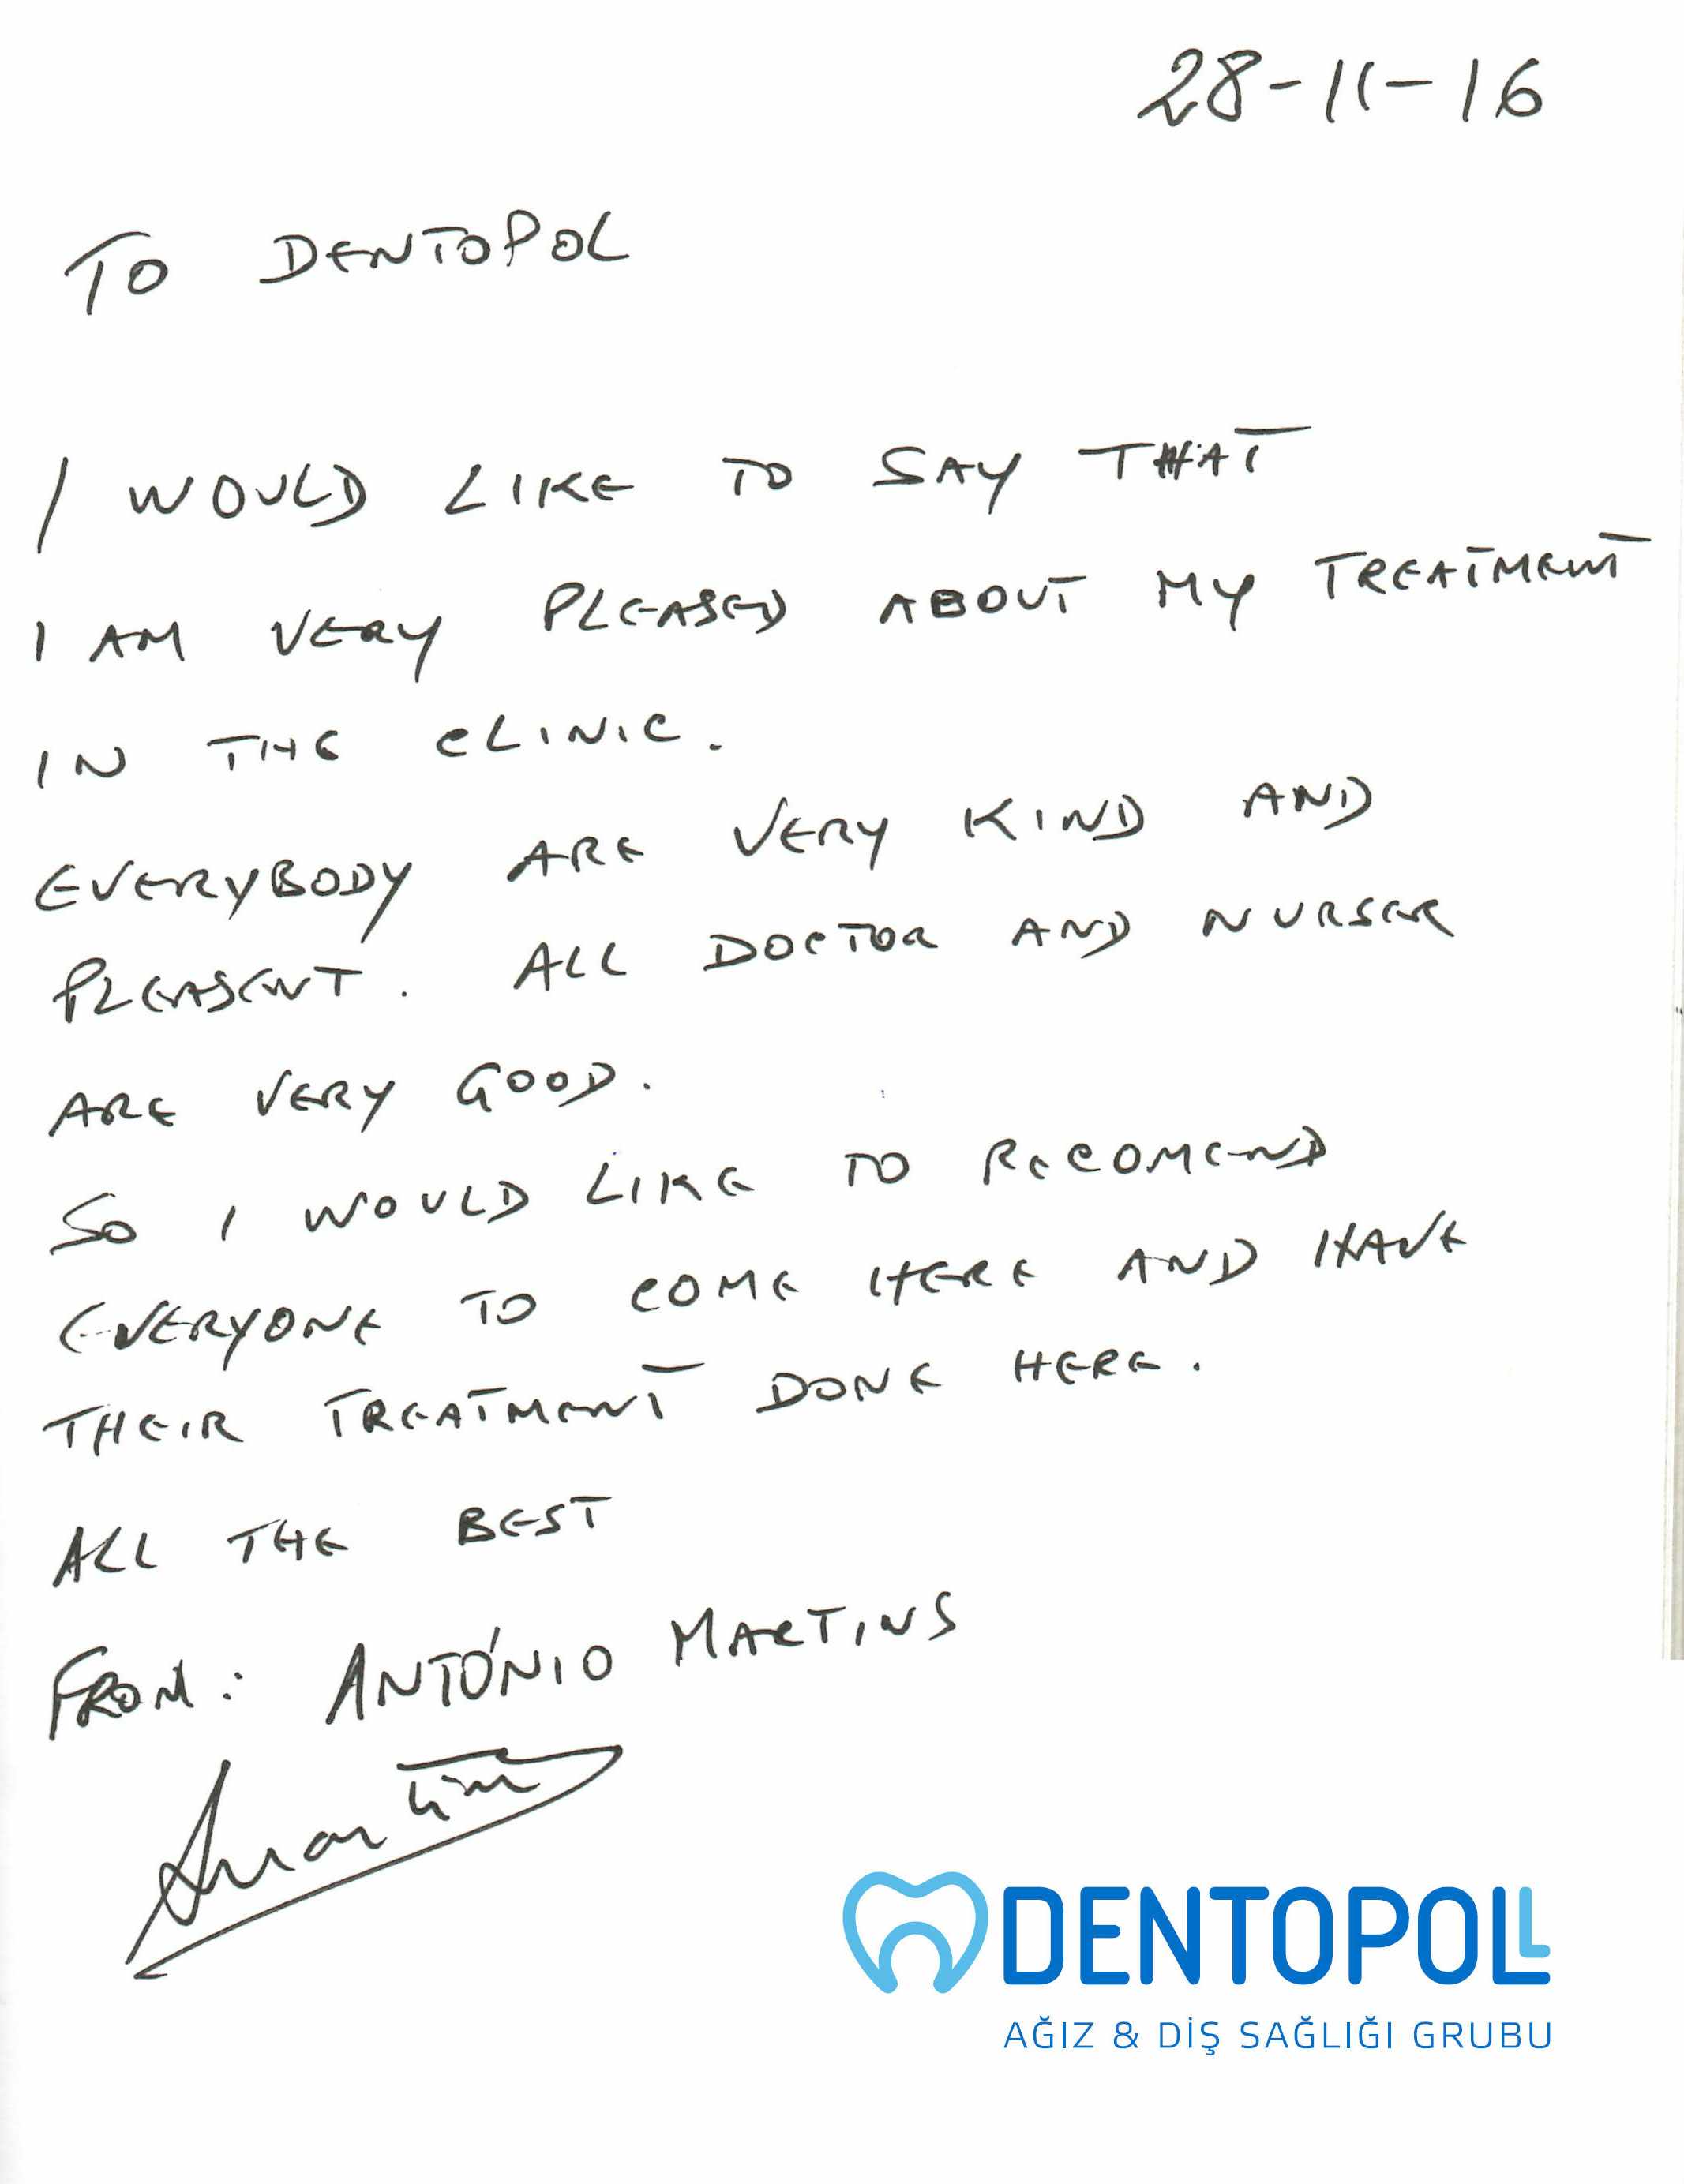 28-11-16
TO DENTOPOL
I WOULD LIKE TO SAY THAT
I AM VERY PLEASED ABOUT MY TREATMENT
IN THE CLINIC.
EVERYBODY ARE VERY KIND AND
PLEASENT. ALL DOCTOR AND NURSER
ARE VERY GOOD.
SO I WOULD LIKE TO RECOMEND
EVERYONE TO COME HERE AND HAVE
THEIR TREATMENT DONE HERE.
ALL THE BEST
FROM: ANTÓNIO MARTINS
DENTOPOLL
AĞIZ & DİŞ SAĞLIĞI GRUBU